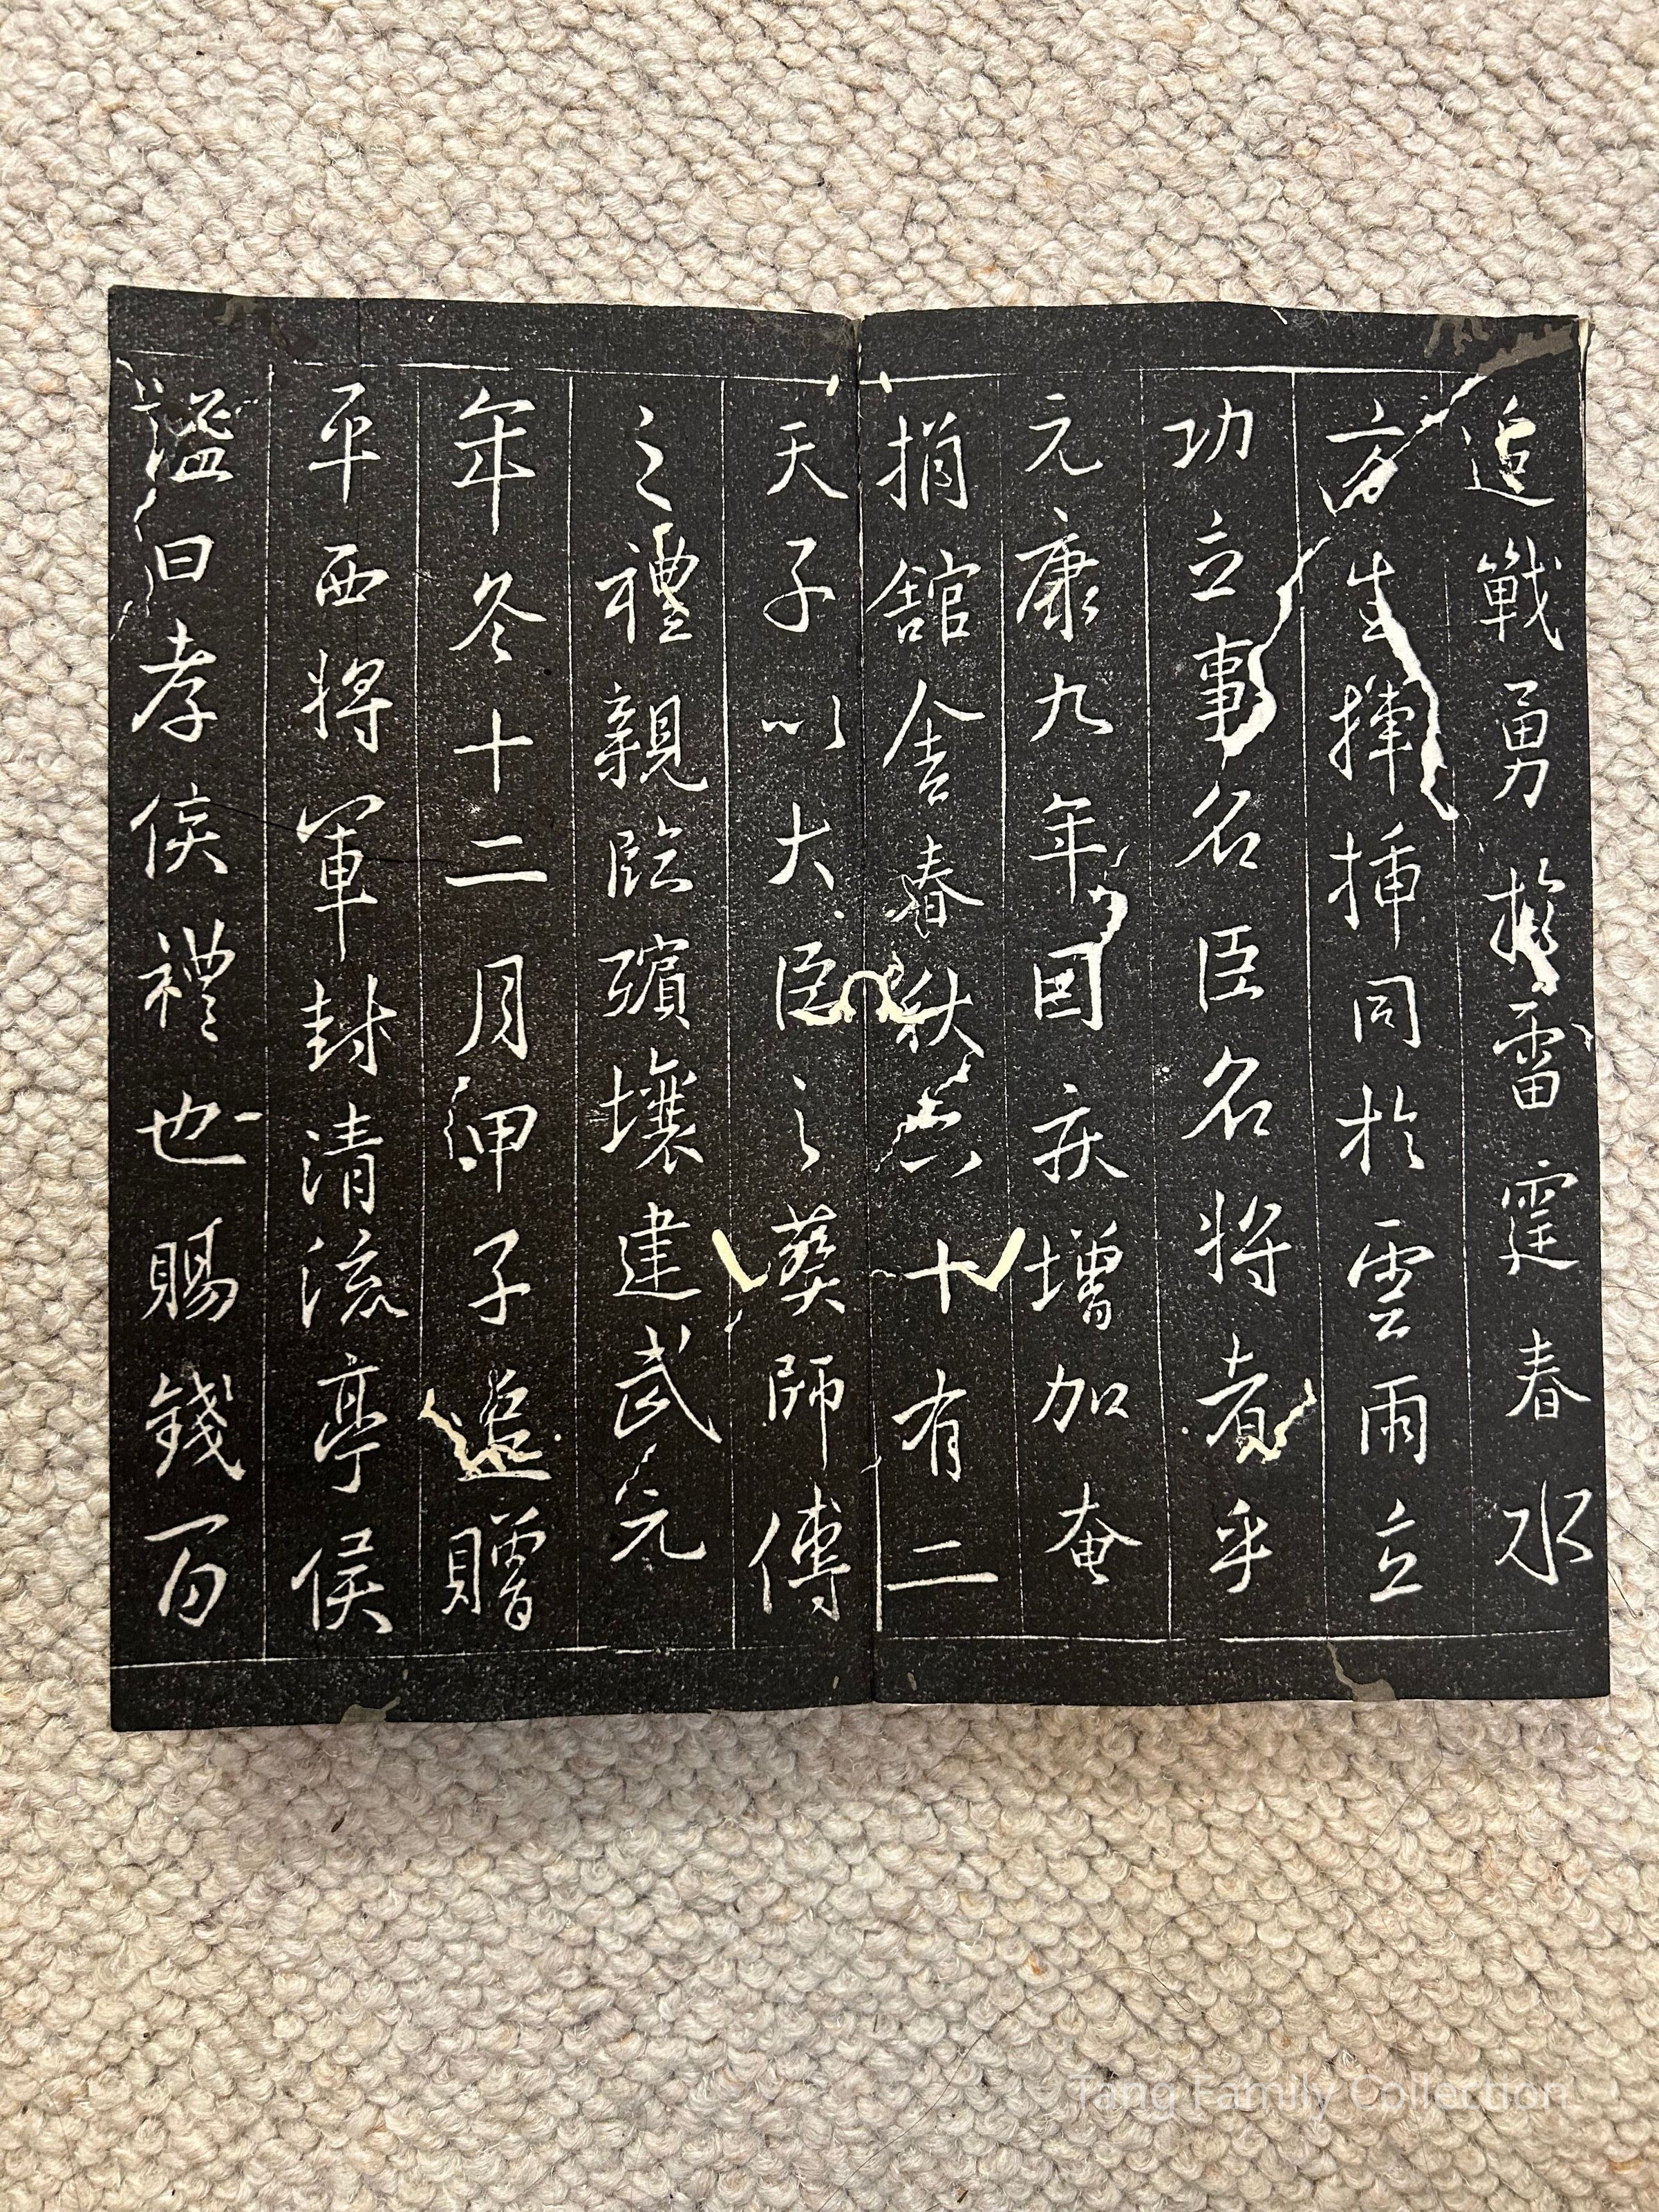 追戰勇擬雷霆春水
方生揮插同於雲雨立
功立事名臣名將者乎
元康九年因疾增加奄
捐館舍春秋六十有二
天子以大臣之葬師傅
之禮親臨殯壤建武元
年冬十二月甲子追贈
平西將軍封清流亭侯
謚曰孝侯禮也賜錢百
Tang Family Collection